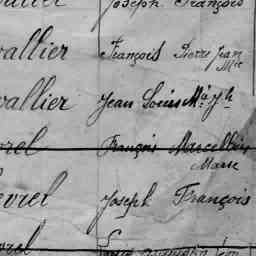 Joseph François
vallier François Pierre Jean
Mie
vallier Jean Louis Mie Jh
orel François Marcellin
Marie
evrel Joseph François
vrel